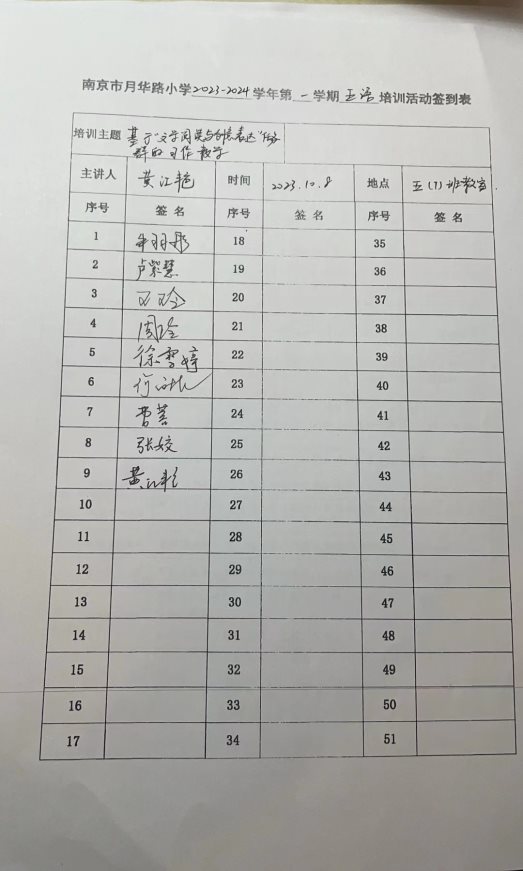 南京市月华路小学2023-2024学年第一学期五语培训活动签到表
培训主题 基于“文学阅读与创意表达”任务
群的习作教学
主讲人 黄江艳 时间 2023.10.8 地点 五(1)班教室.
序号 签名 序号 签名 序号 签名
1 18 35
2 卢紫慧 19 36
3 20 37
4 周玲 21 38
5 徐雪婷 22 39
6 23 40
7 曹菁 24 41
8 张姣 25 42
9 黄江艳 26 43
10 27 44
11 28 45
12 29 46
13 30 47
14 31 48
15 32 49
16 33 50
17 34 51